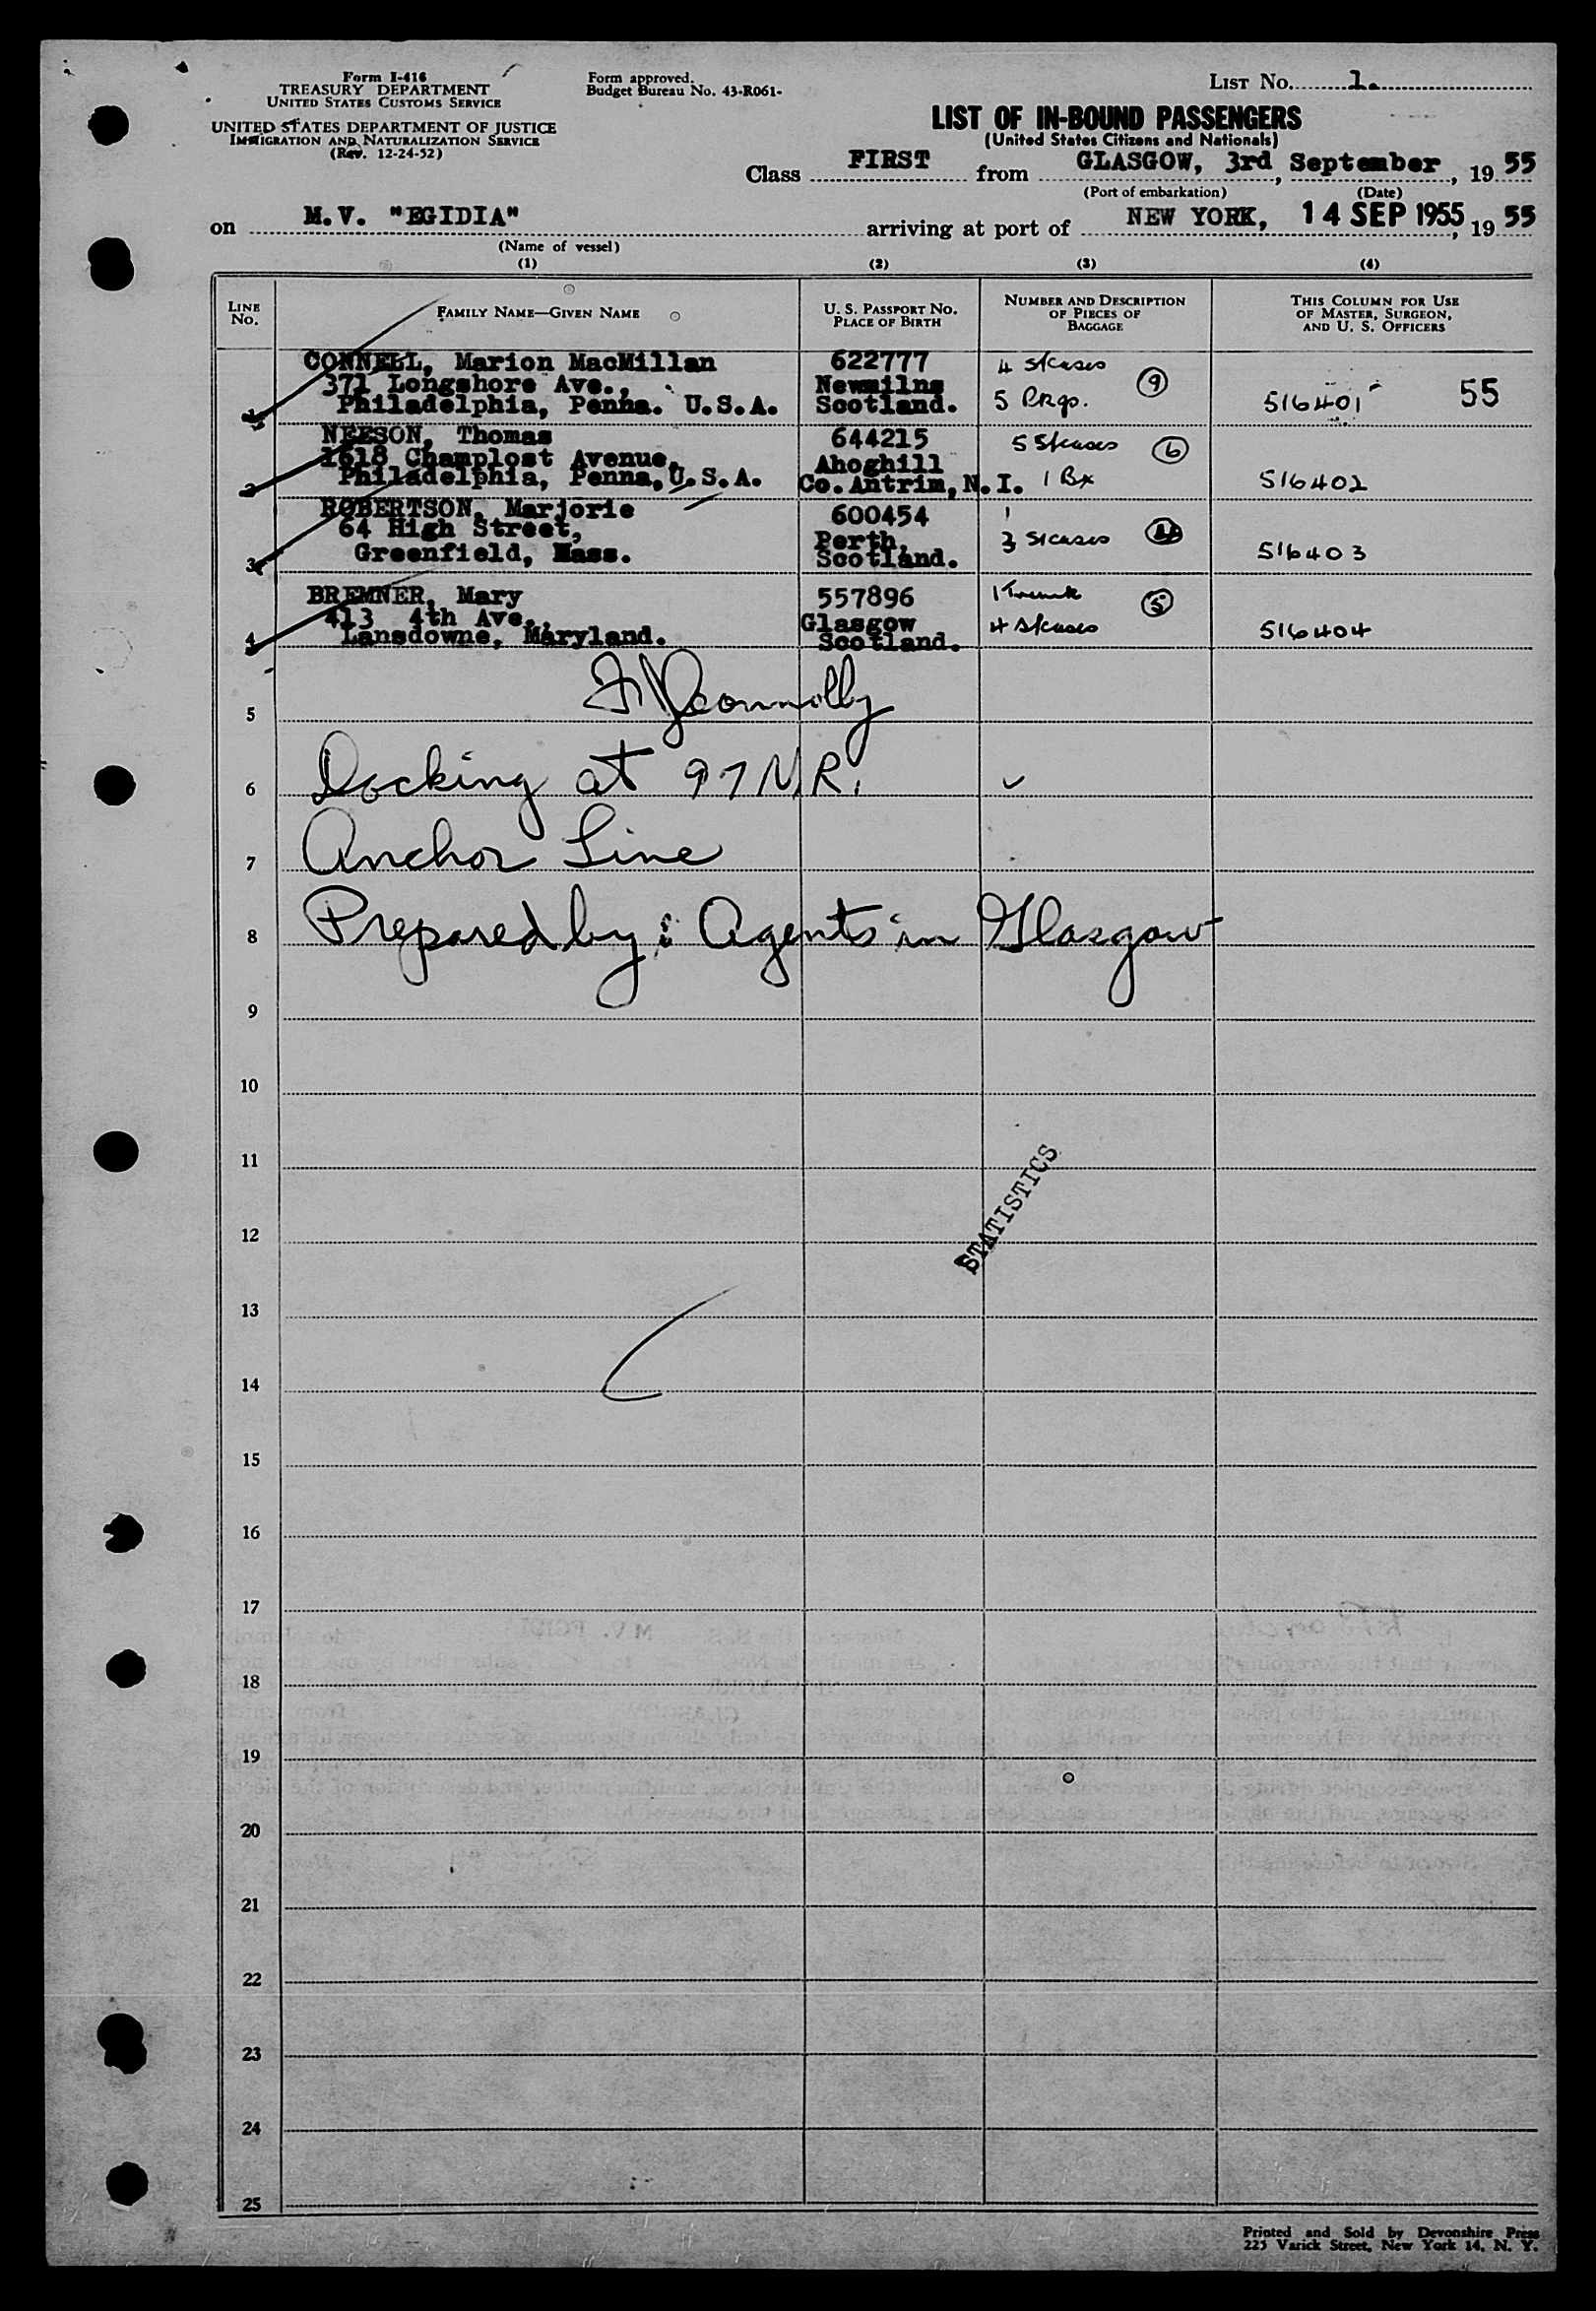 Form I-416
TREASURY DEPARTMENT
UNITED STATES CUSTOMS SERVICE
UNITED STATES DEPARTMENT OF JUSTICE
IMMIGRATION AND NATURALIZATION SERVICE
(Rev. 12-24-52)
Form approved.
Budget Bureau No. 43-R061-
LIST No. 1.
LIST OF IN-BOUND PASSENGERS
(United States Citizens and Nationals)
Class FIRST from GLASGOW, 3rd September, 19 55
(Port of embarkation) (Date)
on M.V. "EGIDIA" arriving at port of NEW YORK, 14 SEP 1955, 19 55
(Name of vessel)
(1) (2) (3) (4)
LINE No. FAMILY NAME—GIVEN NAME U. S. PASSPORT No. PLACE OF BIRTH NUMBER AND DESCRIPTION OF PIECES OF BAGGAGE THIS COLUMN FOR USE OF MASTER, SURGEON, AND U. S. OFFICERS
CONNELL, Marion MacMillan 622777 4 S/cases
371 Longshore Ave., Newmilns 9
1 Philadelphia, Penna. U.S.A. Scotland. 5 Pkgs. 516401 55
NEESON, Thomas 644215 5 S/cases 6
1618 Champlost Avenue, Ahoghill
2 Philadelphia, Penna, U.S.A. Co. Antrim, N.I. 1 Bx 516402
ROBERTSON, Marjorie 600454
64 High Street, Perth, 3 S/cases
3 Greenfield, Mass. Scotland. 516403
BREMNER, Mary 557896 1 Trunk 5
413 4th Ave., Glasgow 4 S/cases
4 Lansdowne, Maryland. Scotland. 516404
Connolly
5
6 Docking at 97 N.R.
7 Anchor Line
8 Prepared by: Agents in Glasgow
9
10
11
STATISTICS
12
13
14
15
16
17
18
19
20
21
22
23
24
25
Printed and Sold by Devonshire Press
225 Varick Street, New York 14, N. Y.